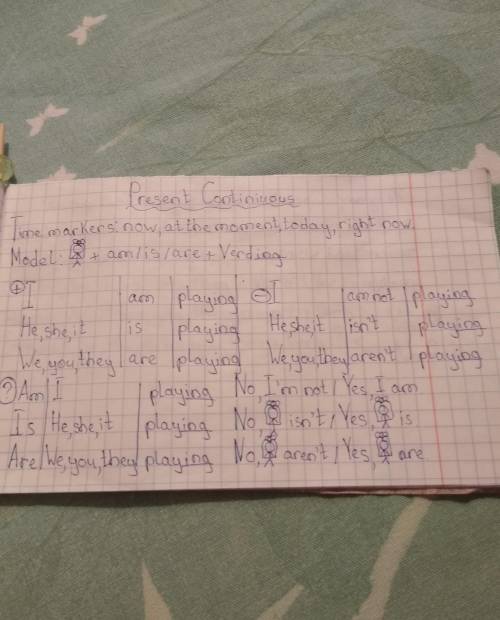 Present Continuous
Time markers: now, at the moment, today, right now.
Model: + am/is/are + Verbing
+ I am playing - I am not playing
He, she, it is playing He, she, it isn't playing
We, you, they are playing We, you, they aren't playing
? Am I playing No, I'm not / Yes, I am
Is He, she, it playing No, isn't / Yes, is
Are We, you, they playing No, aren't / Yes, are